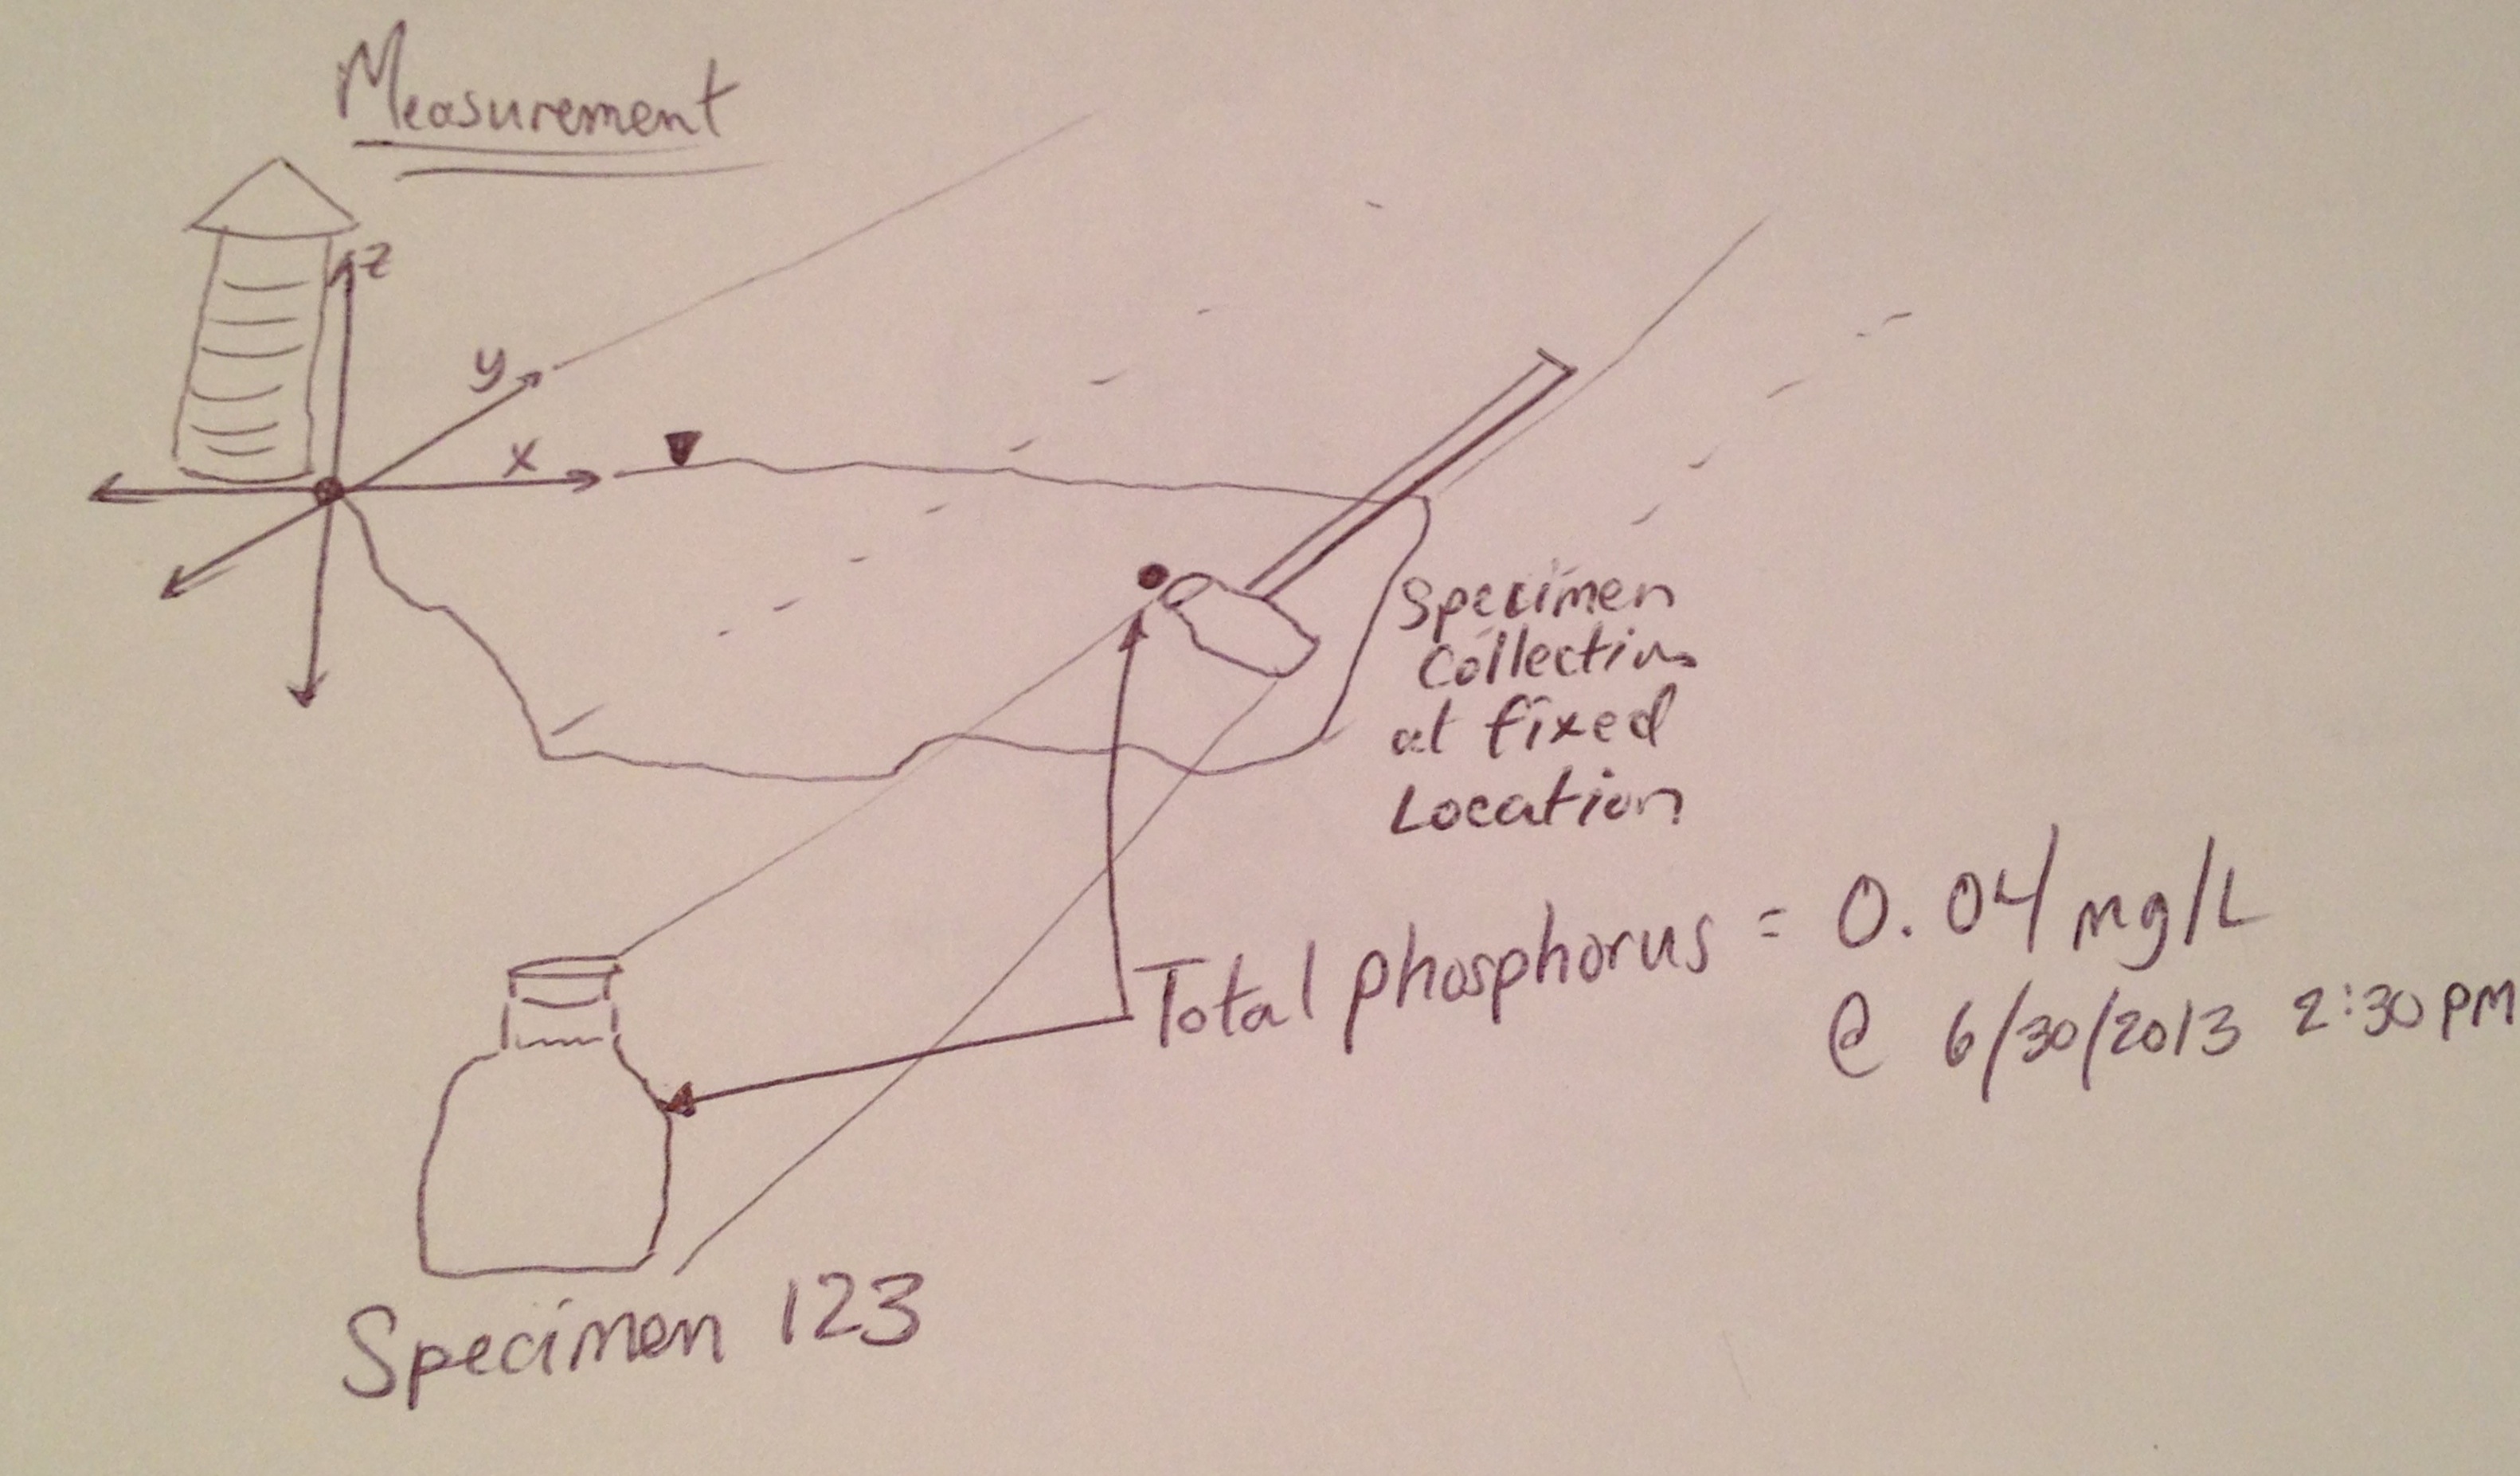 Measurement
z
y
x
Specimen
Collection
at fixed
Location
Total phosphorus = 0.04 mg/L
@ 6/30/2013 2:30 PM
Specimen 123